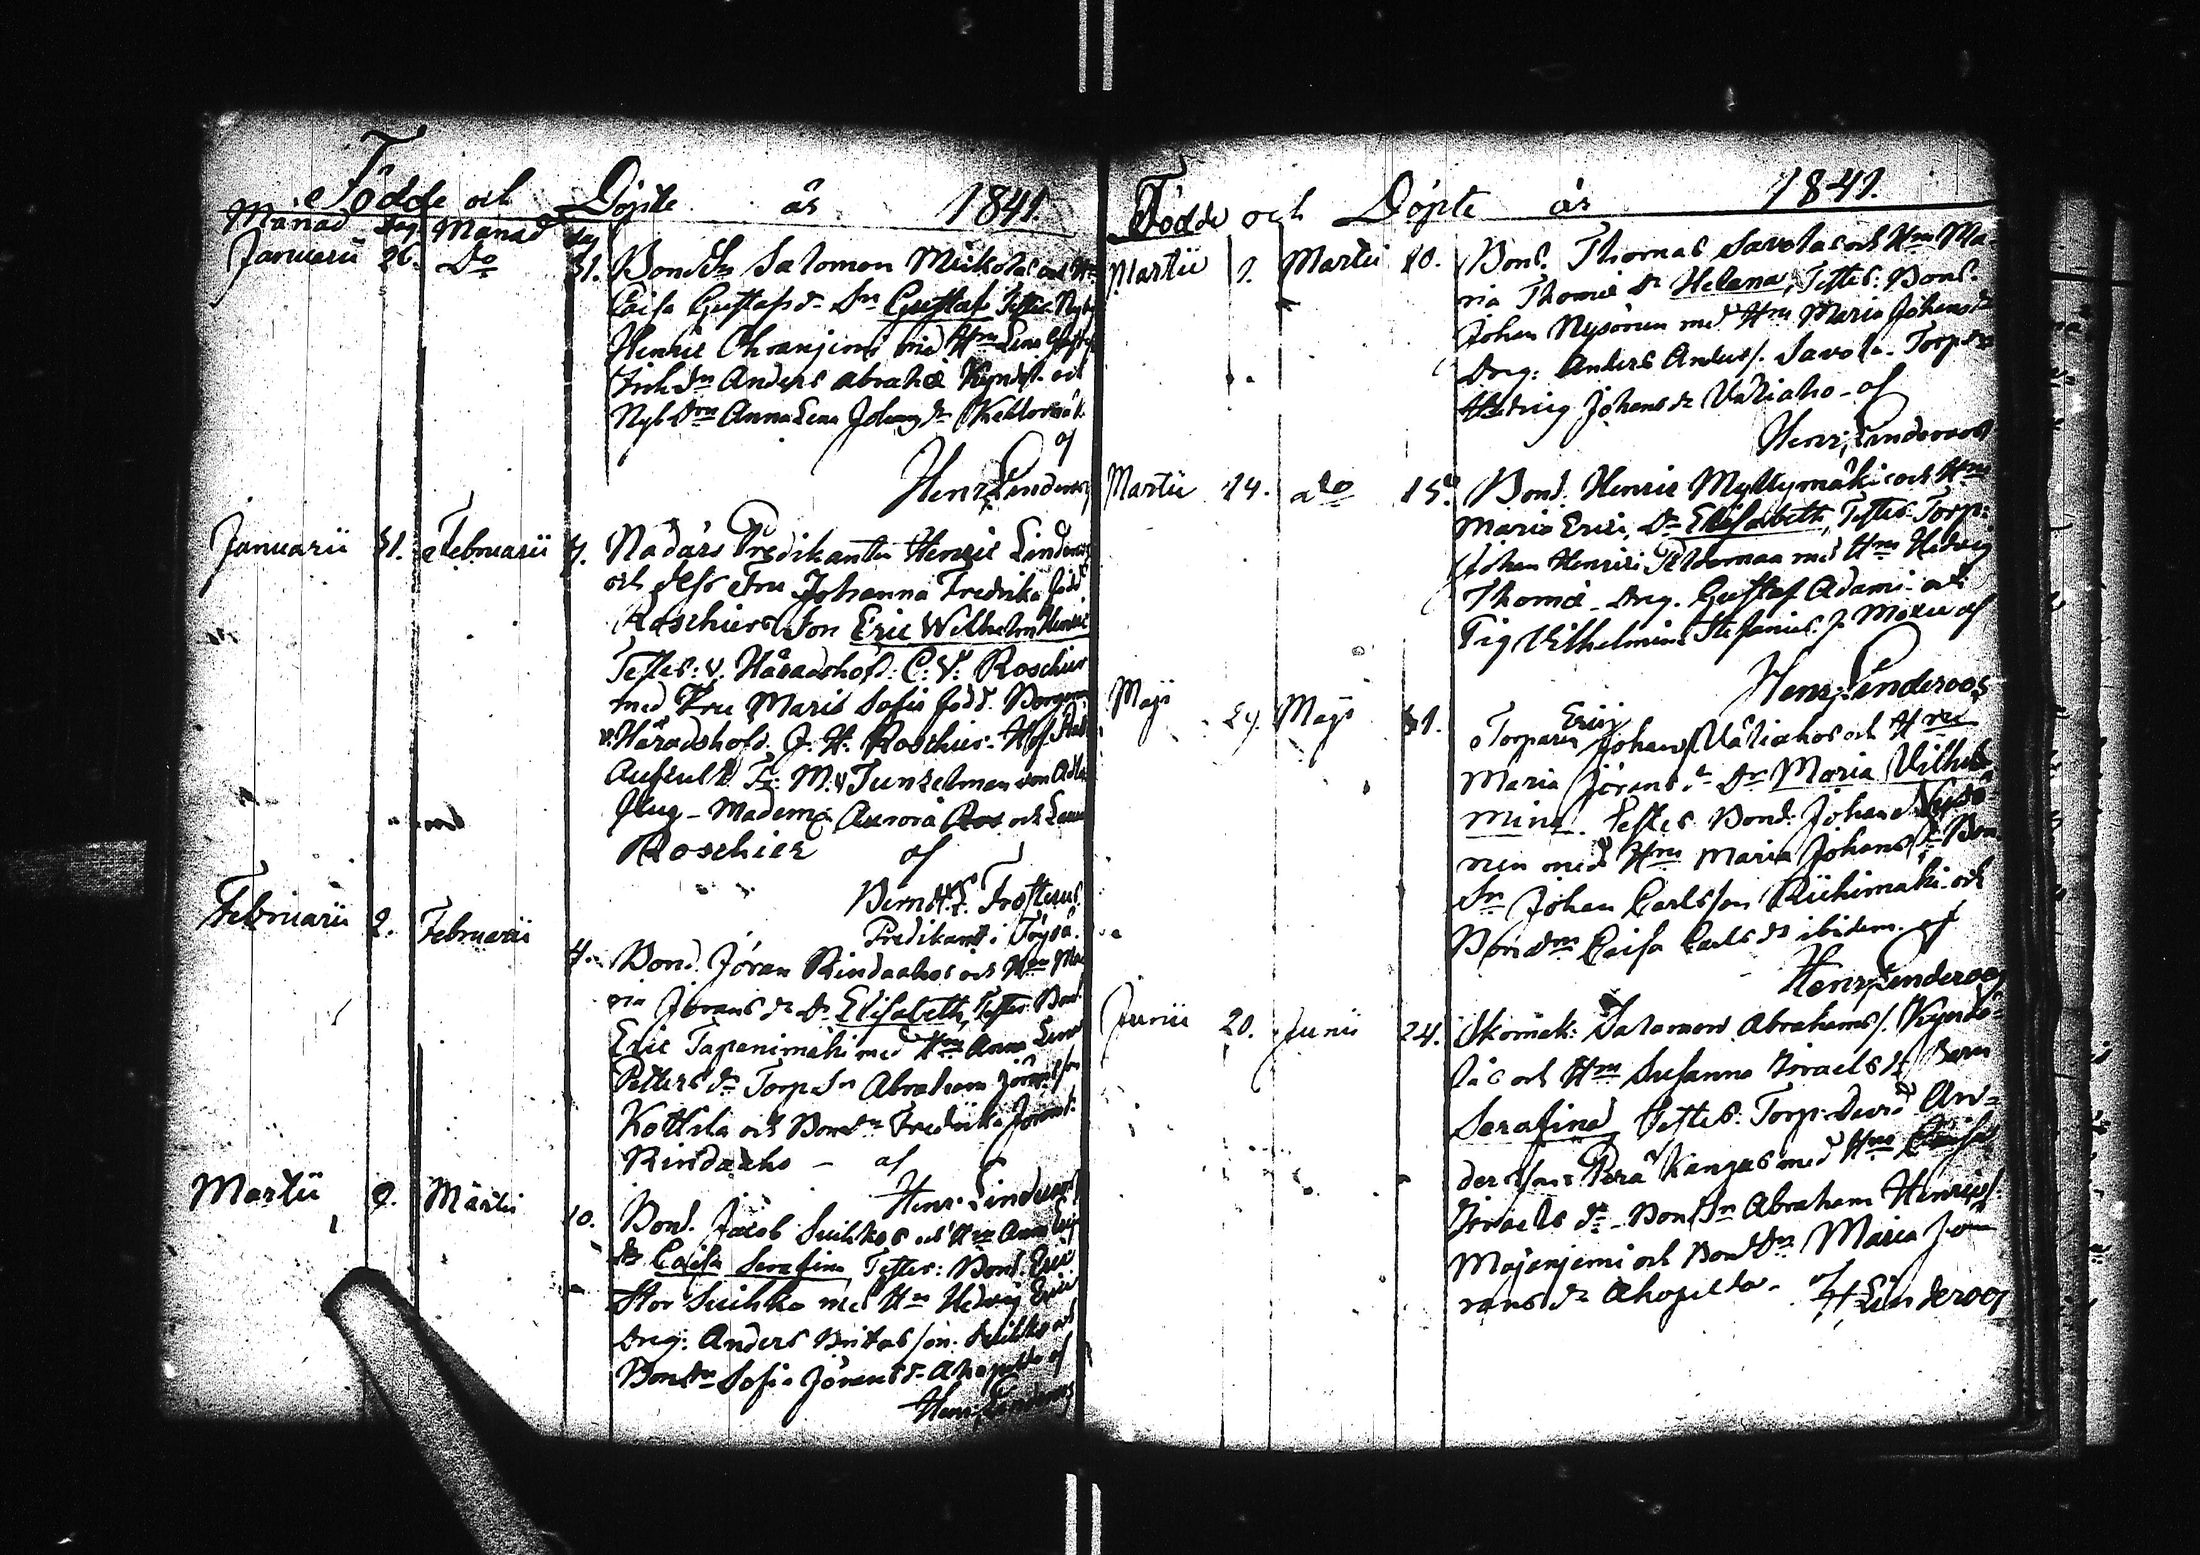 Födde och Döpte år 1841.
Månad dag Månad dag
Januarii 26. Do 31. Bond Sn Salomon Mickolas och
Caisa Gustafs dr Sn Gustaf Testes
Henric Ohranjemi med Hru Lena
Anders Abrah: och
Nyb Drn Anna Lena Johans dr
af
Henr: Linderoos
Januarii 31. Februarii 7. Nådårs Predikanten Henric Linderoos
och dess Fru Johanna Fredrika född
Roschiers Son Eric Wilhelm Henric
Testes: v. Häradshöfd: C: V: Roschier
med Fru Maria Sofia född
v. Häradshöfd. J. H. Roschier. Hof
Auscult F: M: v Tunzelman von Adler
flug - Madem: Aurora och
Roschier af
Berndt F. Frosterus
Predikant i Töysä.
Februarii 2. Februarii 4. Bond. Jöran Rindaahos och Hru Ma
ria Jörans dr Dr Elisabeth, Testes: Bond
Eric Tapanimäki med Hru Anna Lena
Petters dr Torp Sn Abraham Jöransson
Kottila och Bond Dr Fredrika Jörans
Rindaaho - af
Henr: Linderoos
Martii 9. Martii 10. Bond. Jacob Suihkos och Hru Anna
Dr Caisa Serafina Testes: Bond. Eric
Stor Suihko med Hru Hedvig Eric
Dreg: Anders Mattsson. Suihko och
Bond Dr Sofia Jörans dr Ahopelto af
Henr: Linderoos
Födde och Döpte år 1841.
Martii 9. Martii 10. Bond. Thomas Savolas och Hru Ma-
ria Thomæ Dr Helena, Testes: Bond.
Johan Nysöinen med Hru Maria Johans dr
Dreg: Anders Anders s. Savola - Torp dr
Hedvig Johans dr Valiaho - af
Henr; Linderoos
Martii 14. do 15. Bond. Henric Myllymäki och Hru
Maria Erici, Dr Elisabeth, Testes: Torp:
Johan Henrici med Hru Hedvig
Thomæ - Dreg. Gustaf Adami och
Pig Vilhelmina af
Henr; Linderoos
Maji 29. Maji 31. Torparen Johan Erici Väliahos och Hru
Maria Jörans dr Dr Maria Vilhel-
mina. Testes Bond: Johan Nysö-
nen med Hru Maria Johans dr Bon
Sn Johan Carlsson Riihimäki och
Bondn Caisa Carls dr ibidem. af
Henr; Linderoos
Junii 20. Junii 24. Skomak: Salomon Abrahams s. Kyntö-
läs och Hru Susanna Israels dr Barn
Serafina Testes: Torp. David An-
dersson Perä Kangas med Hru Caisa
Israels dr - Bond Sn Abraham Henrics s.
Majanjemi och Bond Dr Maria Jö-
rans dr Ahopelto - af
H Linderoos